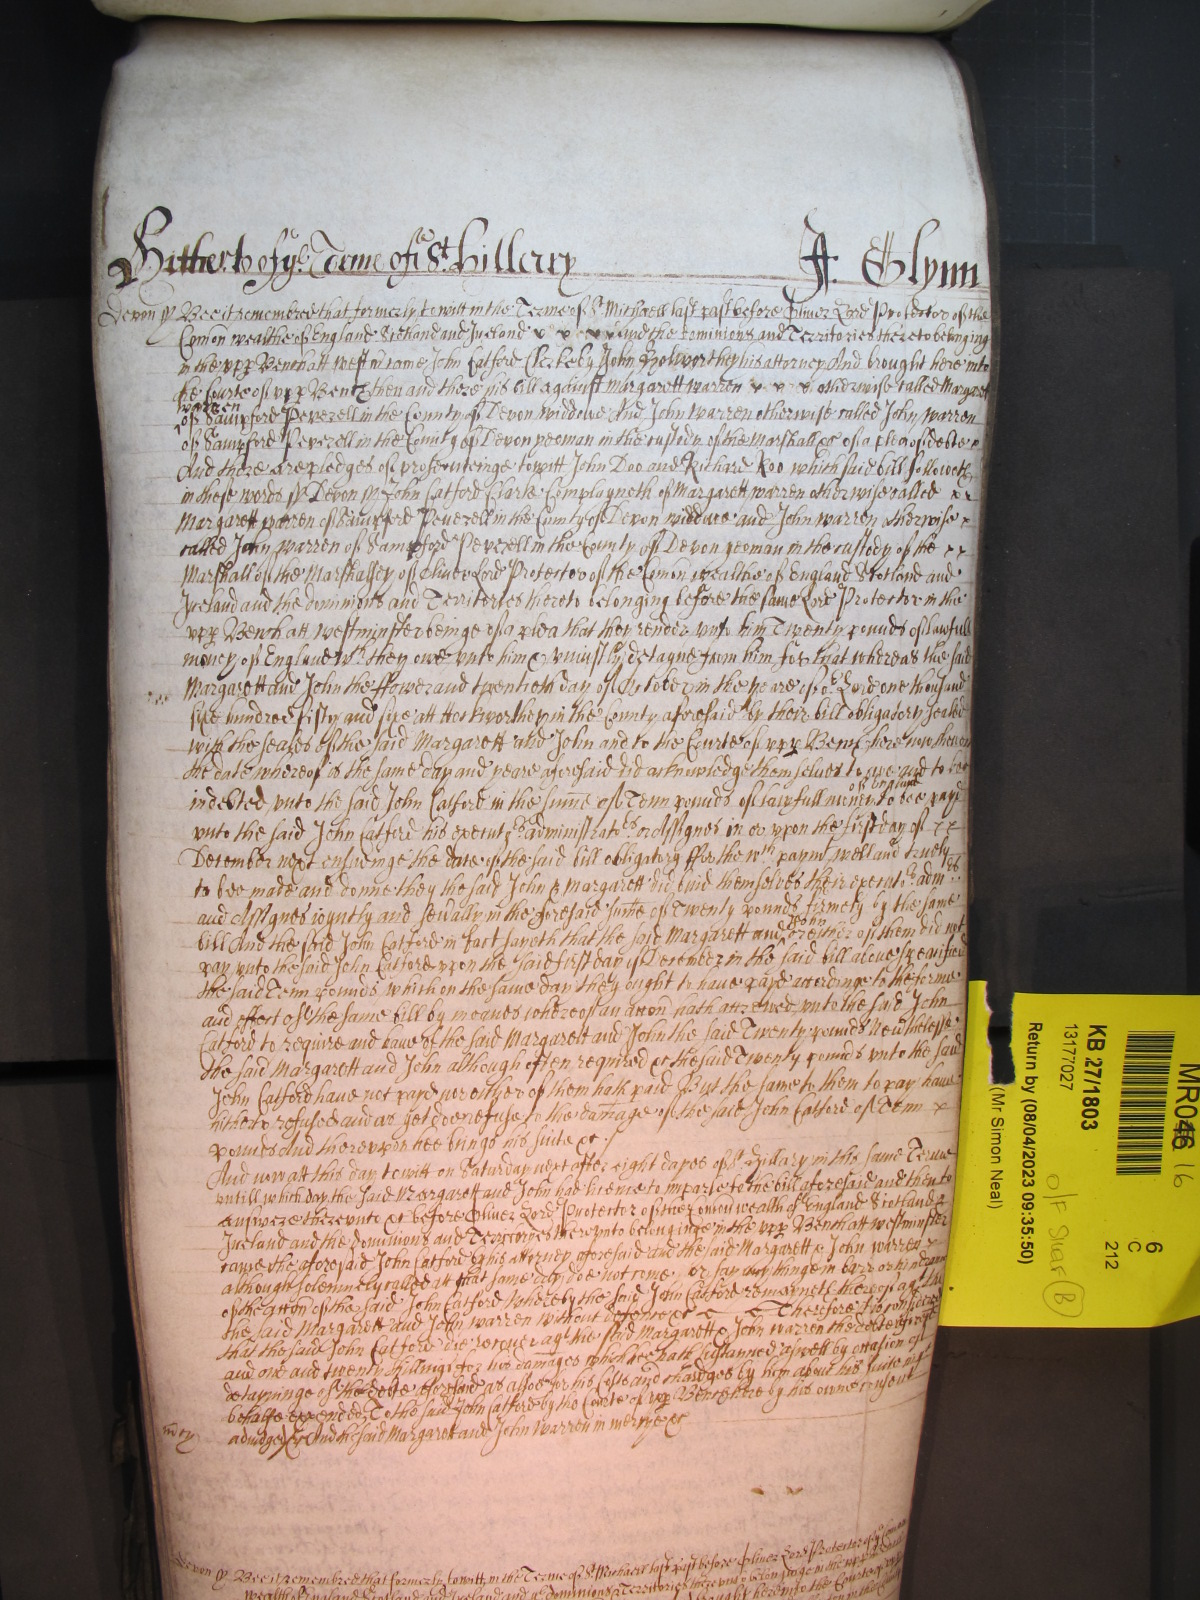 Hitherto of ye Terme of St Hillary
Jt. Glynn
Devon ss Bee it remembred that formerly to witt in the Terme of St Michaell last past before Oliver Lord Protector of the
Comon wealthe of England Scotland and Ireland x x x x and the dominions and Territories thereto belonging
in the vpp Bench att westm came John Catford Clerke by John Holworthy his attorney And brought here into
the Courte of vpp Bench then and there his bill against Margarett warren x x x otherwise called Margarett
warren
of Sampford Peverell in the County of Devon widdowe And John warren otherwise called John warren
of Sampford Peverell in the County of Devon yeoman in the custody of the Marshall &c of a plea of debte
And there are pledges of prosecuteinge to witt John Doo and Richard Roo which said bill followeth
in these words ss Devon ss John Catford Clerke Complayneth of Margarett warren otherwise called x x
Margarett warren of Sampford Peverell in the County of Devon widdowe and John warren otherwise x
called John warren of Sampford Peverell in the County of Devon yeoman in the custody of the x x
Marshall of the Marshalsey of Oliver Lord Protector of the Comon wealthe of England Scotland and
Ireland and the dominions and Territories thereto belonging before the same Lord Protector in the
vpp Bench att westminster beinge of a plea that they render vnto him Twenty pounds of lawfull
money of England wch they owe vnto him & uniustly detayne from him For that whereas the said
Margarett and John the ffower and twentieth day of October in the yeare of or Lord one thousand
sixe hundred fifty and sixe att Hockworthey in the County aforesaid by their bill obligatory sealed
with the seales of the said Margarett and John and to the Courte of vpp Bench here now shewen
the date whereof is the same day and yeare aforesaid did acknowledge themselves to owe and to bee
indebted vnto the said John Catford in the summe of Tenn pounds of lawfull money to bee payd
of England
vnto the said John Catford his executrs administratrs or Assignes in or vpon the first day of x x
December next ensueinge the date of the said bill obligatory ffor the wch paymt well and truely
to bee made and donne they the said John & Margarett did bind themselves their executrs admrs
and Assignes ioyntly and severally in the foresaid summe of Twenty pounds firmely by the same
bill And the said John Catford in fact sayeth that the said Margarett and John or either of them did not
pay vnto the said John Catford vpon the said first day of December in the said bill above specified
the said Tenn pounds which on the same day they ought to have payd accordinge to the forme
and effect of the same bill by meanes whereof an accon hath accrewed vnto the said John
Catford to require and have of the said Margarett and John the said Twenty pounds Nevthelesse
the said Margarett and John although often required &c the said Twenty pounds vnto the said
John Catford have not payd nor either of them hath paid But the same to them to pay have
hitherto refused and as yet doe refuse to the damage of the said John Catford of Tenn x
pounds And therevpon hee brings his suite &c
And now att this day to witt on Saturday next after eight dayes of St Hillary in this same Terme
vntill which day the said Margarett and John had licence to imparle to the bill aforesaid and then to
answere therevnto &c before Oliver Lord Protector of the Comon wealth of England Scotland &
Ireland and the dominions and Territoryes therevnto belonginge in the vpp Bench att westminster
came the aforesaid John Catford by his attorney aforesaid and the said Margarett & John warren x
although solemnely called att that same day doe not come, or say any thinge in barr or hinderance
of the accon of the said John Catford whereby the said John Catford remaineth therein agt
the said Margarett and John warren without defence &c Therefore It is considered
that the said John Catford doe recover agt the said Margarett & John warren the debte aforesd
and one and twenty shillings for his damages which hee hath sustained aswell by occasion of
detayninge of the debte aforesaid as alsoe for his costs and chardges by him about his suite in yt
behalfe expended To the said John Catford by the Courte of vpp Bench here by his owne consent
adiudged &c And the said Margarett and John Warren in mercye &c
m cy
Devon ss Bee it remembred that formerly to witt in the Terme of St Michaell last past before Oliver Lord Protector of ye Comon
wealth of England Scotland and Ireland and ye dominions & Territories therevnto belonginge in the vpp
MR046 16
6
C
212
KB 27/1803
13177027
Return by (08/04/2023 09:35:50)
(Mr Simon Neal)
O/F Shar B